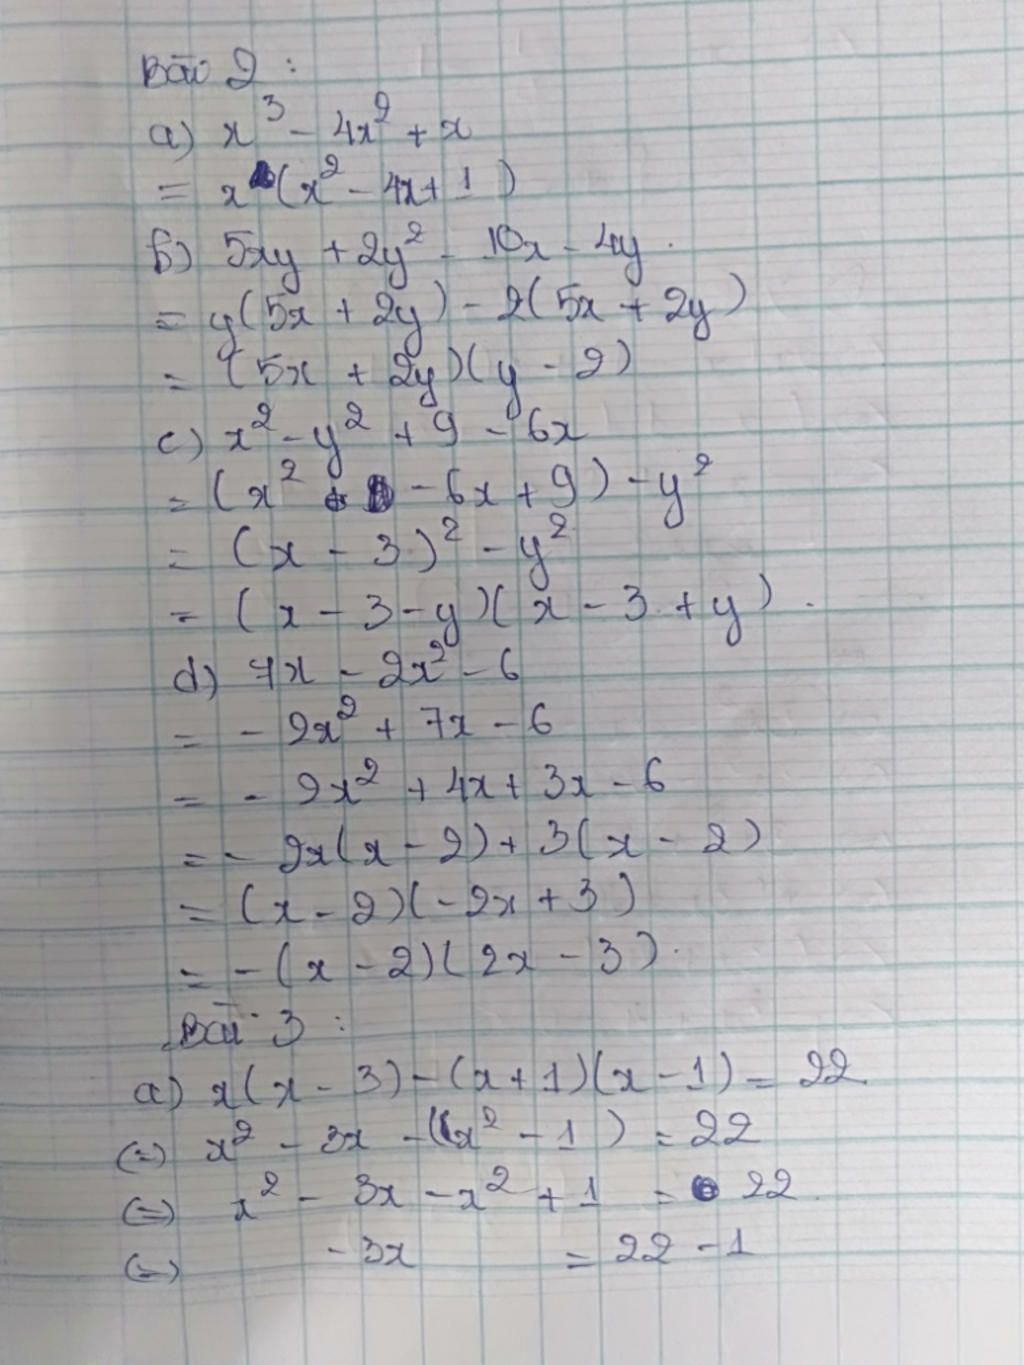 Bài 2 :
a) x³ - 4x² + x
= x (x² - 4x + 1)
b) 5xy + 2y² - 10x - 4y.
= y(5x + 2y) - 2(5x + 2y)
= (5x + 2y)(y - 2)
c) x² - y² + 9 - 6x
= (x² - 6x + 9) - y²
= (x - 3)² - y²
= (x - 3 - y)(x - 3 + y).
d) 7x - 2x² - 6
= - 2x² + 7x - 6
= - 2x² + 4x + 3x - 6
= - 2x(x - 2) + 3(x - 2)
= (x - 2)(-2x + 3)
= -(x - 2)(2x - 3).
Bài 3 :
a) x(x - 3) - (x + 1)(x - 1) = 22
(=) x² - 3x - (x² - 1) = 22
(=) x² - 3x - x² + 1 = 22.
(=) - 3x = 22 - 1